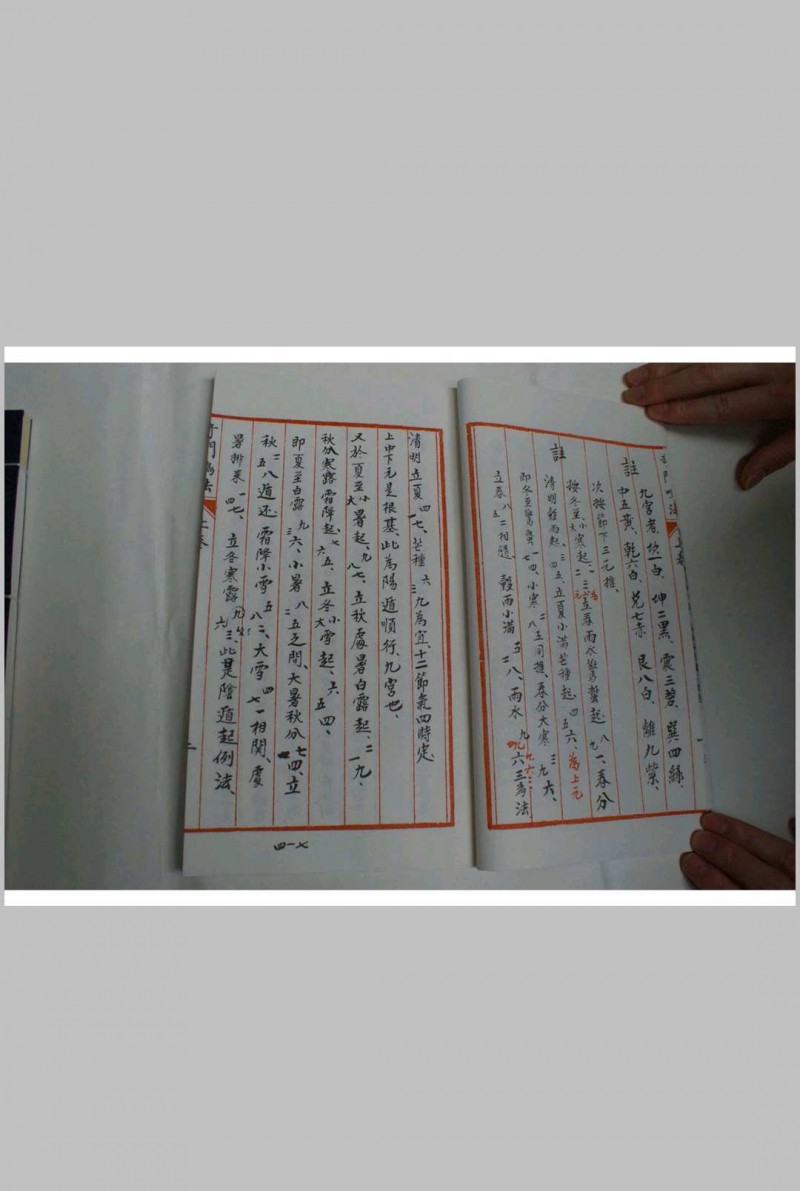 註
九宮者、坎一白、坤二黑、震三碧、巽四綠、
中五黃、乾六白、兌七赤、艮八白、離九紫、
註
次按節下三元推、
按冬至大小寒起、一二三立春雨水驚蟄起、八九一、春分
清明穀雨起、三四五、立夏小滿芒種起、四五六、為上元
即冬至驚蟄一七四、小寒二八五同推、春分大寒三九六、
立春八五二相隨、穀雨小滿五二八、雨水九六三為法
清明立夏四一七、芒種六三九為宜、十二節氣四時定、
上中下元是根基、此為陽遁順行、九宮也、
又於夏至大小暑起、九八七、立秋處暑白露起、二一九、
秋分寒露霜降起、七六五、立冬大小雪起、六五四、
即夏至白露九三六、小暑八二五之間、大暑秋分七一四、立
秋二五八遁還、霜降小雪五八二、大雪四七一相関、處
暑排來一四七、立冬寒露六九三、此是陰遁起例法、
奇門 法 上卷
二
四一七